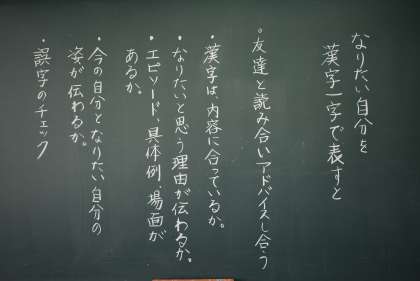 なりたい自分を
漢字一字で表すと
。友達と読み合いアドバイスし合う
・漢字は、内容に合っているか。
・なりたいと思う理由が伝わるか。
・エピソード、具体例、場面が
あるか。
・今の自分となりたい自分の
姿が伝わるか。
・誤字のチェック